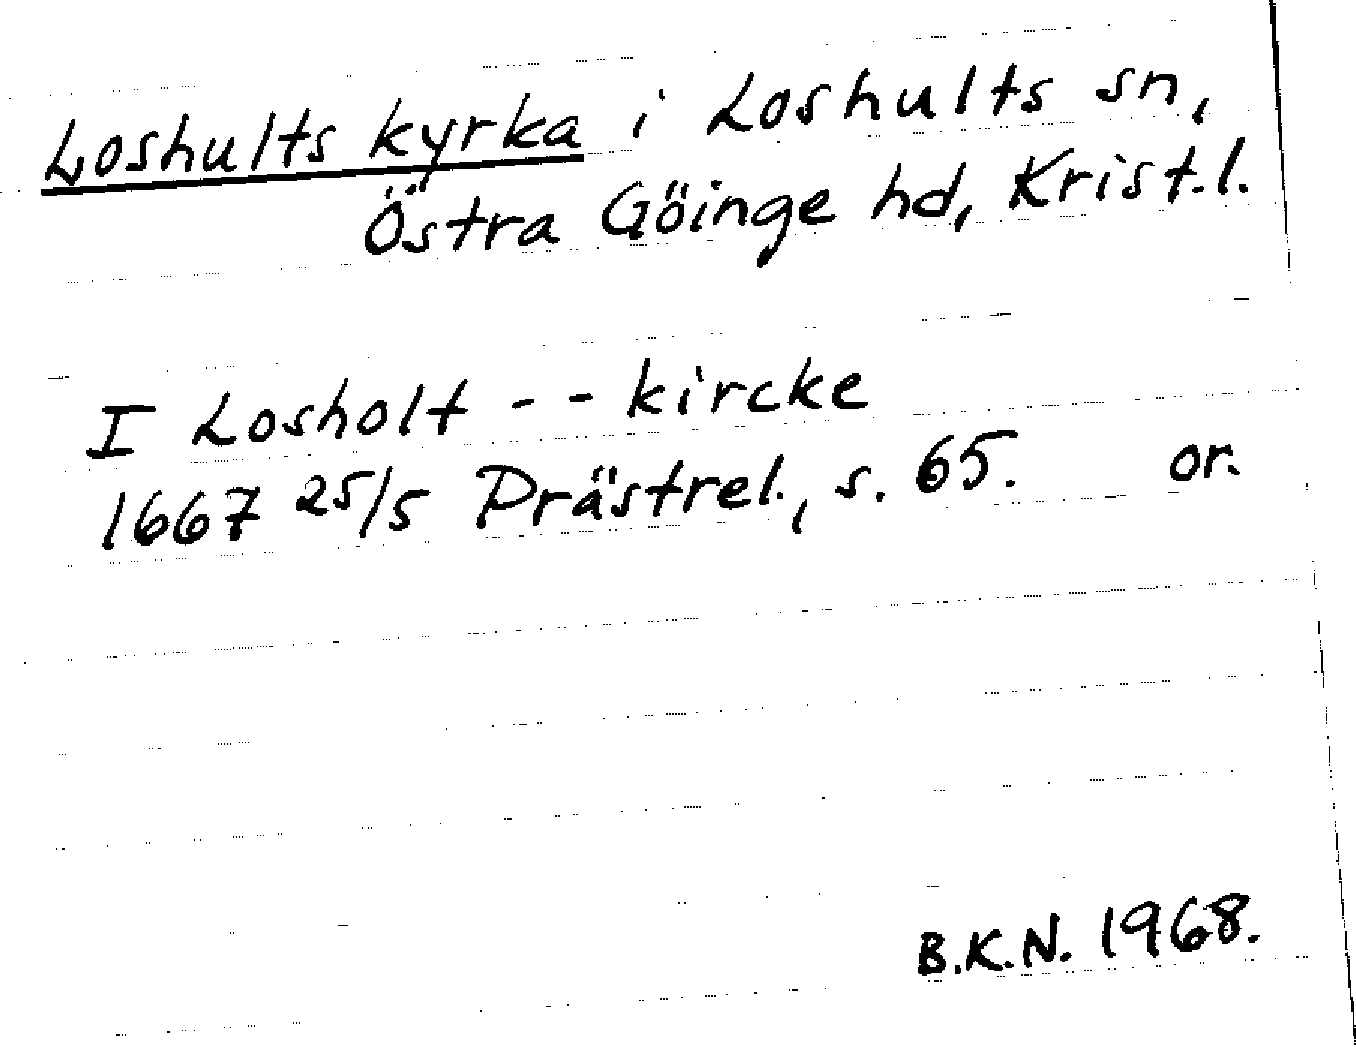 Loshults kyrka i Loshults sn,
Östra Göinge hd, Krist.l.
I Losholt - - kircke
1667 25/5 Prästrel., s. 65. or.
B.K.N. 1968.